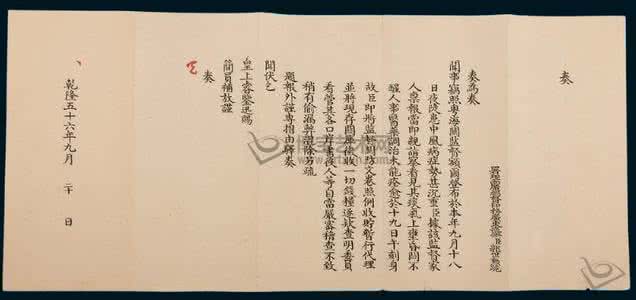 奏
署理兩廣總督印務廣東巡撫臣郭世勳跪
奏為奏
聞事竊照粵海關監督額爾登布於本年九月十八
日夜陡患中風病症勢甚沉重臣據該監督家
人稟報當即親詣署看見其痰氣上壅昏悶不
醒人事醫藥調治未能痊愈於十九日午刻身
故臣即將監督關防文卷照例收貯暫行代理
並將現存關庫徵收一切錢糧逐款查明委員
看管其各口岸書役人等自當嚴密稽查不致
稍有偷漏弊混除另疏
題報外謹專摺由驛奏
聞伏乞
皇上睿鑒迅賜
簡員補放謹
奏
乾隆五十六年九月 二十 日